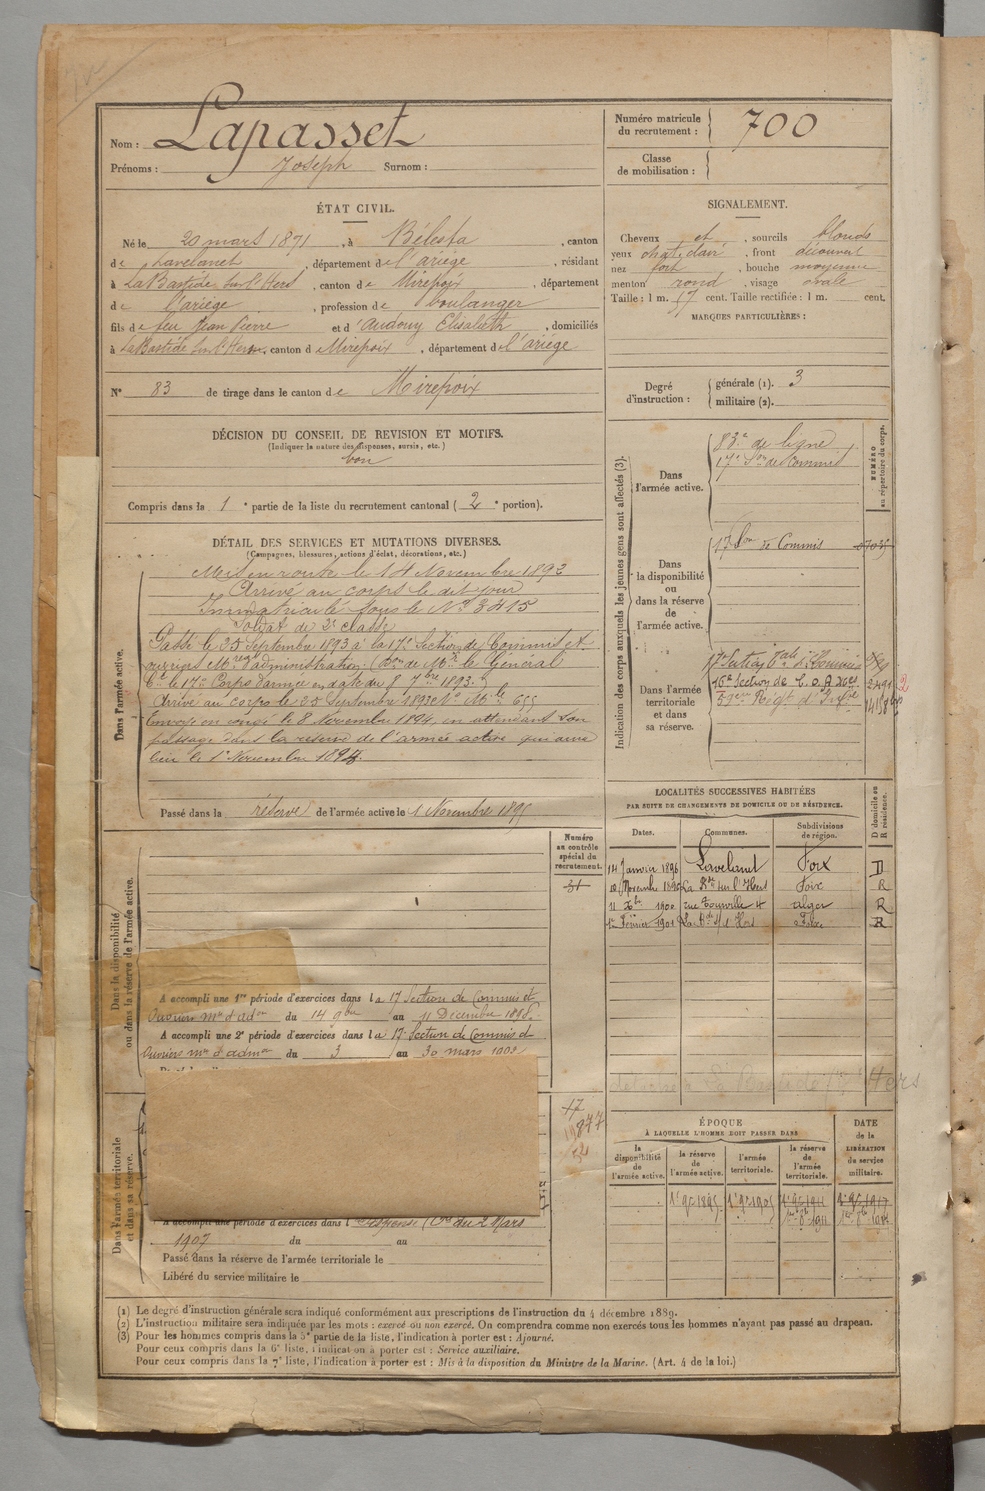 Nom : Lapasset
Prénoms : Joseph Surnom :
ÉTAT CIVIL.
Né le 20 mars 1871, à Bélesta, canton
de Lavelanet, département de l'ariège, résidant
à La Bastide sur l'Hers, canton de Mirepoix, département
de l'ariège, profession de boulanger
fils de feu Jean Pierre et d'Audouy Elisabeth, domiciliés
à La Bastide sur l'Hers, canton d Mirepoix, département de l'ariège
N° 83 de tirage dans le canton de Mirepoix
DÉCISION DU CONSEIL DE REVISION ET MOTIFS.
(Indiquer la nature des dispenses, sursis, etc.)
bon
Compris dans la 1e partie de la liste du recrutement cantonal (2e portion).
DÉTAIL DES SERVICES ET MUTATIONS DIVERSES.
(Campagnes, blessures, actions d'éclat, décorations, etc.)
Dans l'armée active.
Mis en route le 14 Novembre 1892
Arrivé au corps le dit jour
Immatriculé sous le N° 3415
Soldat de 2e classe
Passé le 25 Septembre 1893 à la 17e Section de Commis et
ouvriers Mres d'administration (Don de Mr le Général
Ct le 17e Corps d'armée en date du 8 7bre 1893.)
Arrivé au corps le 25 Septembre 1893 N° Mle 655
Envoyé en congé le 8 Novembre 1894, en attendant son
passage dans la réserve de l'armée active qui aura
lieu le 1er Novembre 1895.
Passé dans la réserve de l'armée active le 1 Novembre 1895
Numéro au contrôle spécial du recrutement.
31
Dans la disponibilité ou dans la réserve de l'armée active.
A accompli une 1re période d'exercices dans la 17 Section de Commis et
Ouvriers mres d'adon du 14 9bre au 11 Décembre 1898.
A accompli une 2e période d'exercices dans la 17e Section de Commis et
Ouvriers mres d'admon du 3 au 30 mars 1902
Dans l'armée territoriale et dans sa réserve.
17
877
A accompli une période d'exercices dans l Dispensé ( du 2 Mars
1907 du au
Passé dans la réserve de l'armée territoriale le
Libéré du service militaire le
Numéro matricule du recrutement : 700
Classe de mobilisation :
SIGNALEMENT.
Cheveux et, sourcils blonds
yeux chat. clair, front découvert
nez fort, bouche moyenne
menton rond, visage ovale
Taille : 1 m. 57 cent. Taille rectifiée : 1 m. cent.
MARQUES PARTICULIÈRES :
Degré d'instruction : générale (1). 3
militaire (2).
Indication des corps auxquels les jeunes gens sont affectés (3).
NUMÉRO au répertoire du corps.
Dans l'armée active.
83e de ligne
17e Son de Commis
Dans la disponibilité ou dans la réserve de l'armée active.
17 Son de Commis
Dans l'armée territoriale et dans sa réserve.
17e Section Tale de Commis
16e Section de C. O. A.
2491
Régt d'Infie
LOCALITÉS SUCCESSIVES HABITÉES
PAR SUITE DE CHANGEMENTS DE DOMICILE OU DE RÉSIDENCE.
Dates. Communes. Subdivisions de région. D domicile ou R résidence.
14 Janvier 1896 Lavelanet Foix D
Novembre 1896 La Bde sur l'Hers Foix R
11 Xbre 1900 rue Tourville 4 Alger R
12 Février 1901 La Bde s/ l'Hers Foix R
La Bastide s/ l'Hers
ÉPOQUE
À LAQUELLE L'HOMME DOIT PASSER DANS
DATE de la LIBÉRATION du service militaire.
la disponibilité de l'armée active.
la réserve de l'armée active.
l'armée territoriale.
la réserve de l'armée territoriale.
1er 9bre 1895 1er 9bre 1905 1er 9bre 1911 1er 9bre 1917
1er 8bre 1911
(1) Le degré d'instruction générale sera indiqué conformément aux prescriptions de l'instruction du 4 décembre 1889.
(2) L'instruction militaire sera indiquée par les mots : exercé ou non exercé. On comprendra comme non exercés tous les hommes n'ayant pas passé au drapeau.
(3) Pour les hommes compris dans la 5e partie de la liste, l'indication à porter est : Ajourné.
Pour ceux compris dans la 6e liste, l'indication à porter est : Service auxiliaire.
Pour ceux compris dans la 7e liste, l'indication à porter est : Mis à la disposition du Ministre de la Marine. (Art. 4 de la loi.)